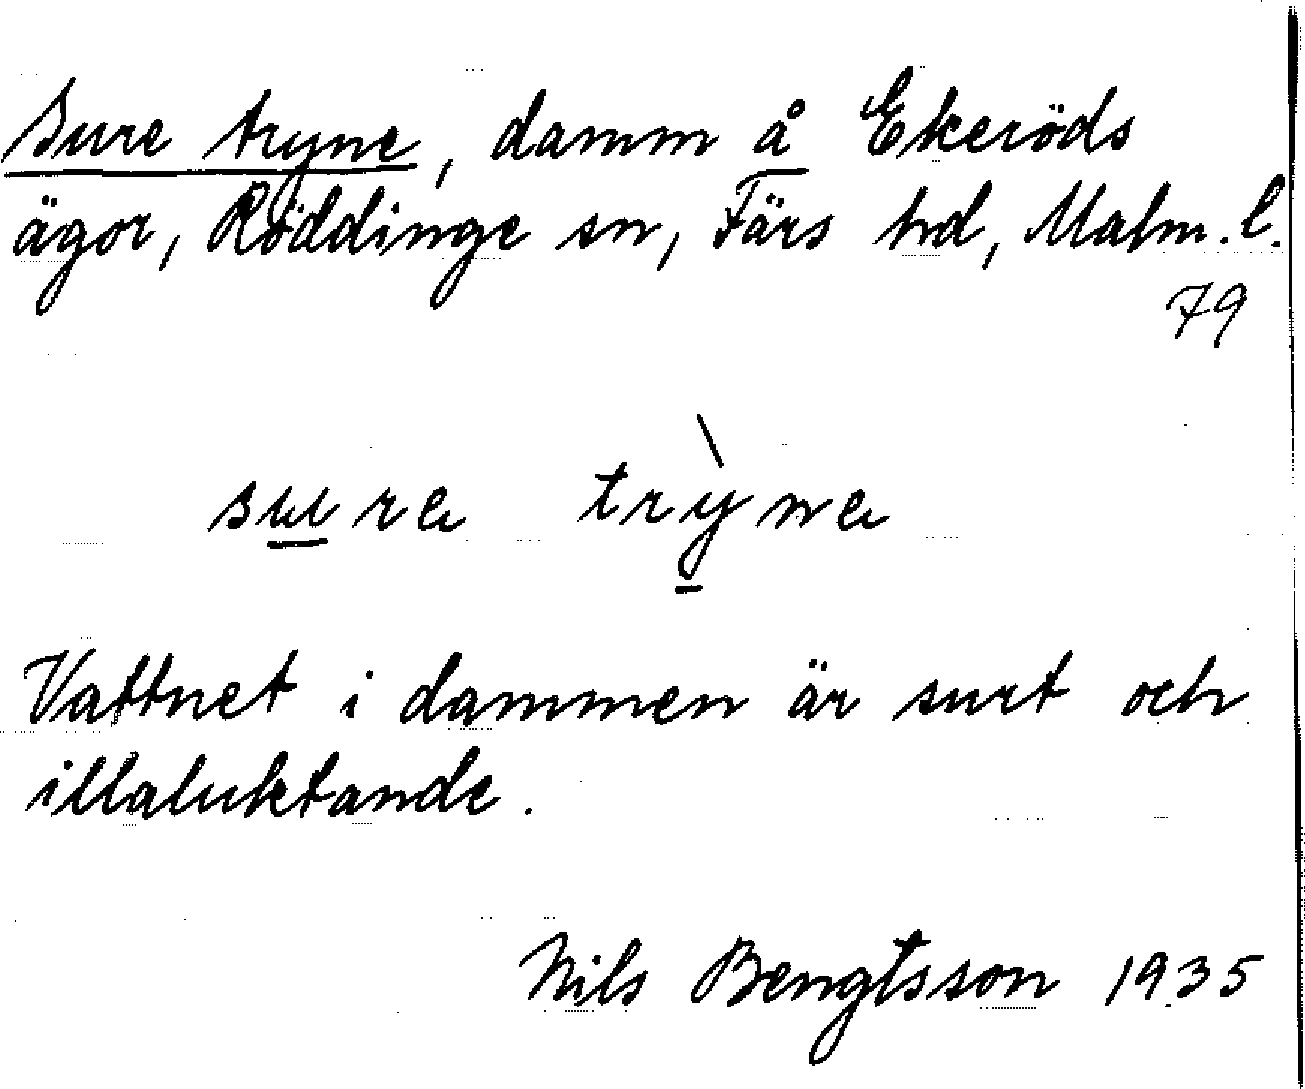 Sure tryne, damm å Ekeröds
ägor, Röddinge sn, Färs hd, Malm. l.
79
sɯre trỳne
Vattnet i dammen är surt och
illaluktande.
Nils Bengtsson 1935